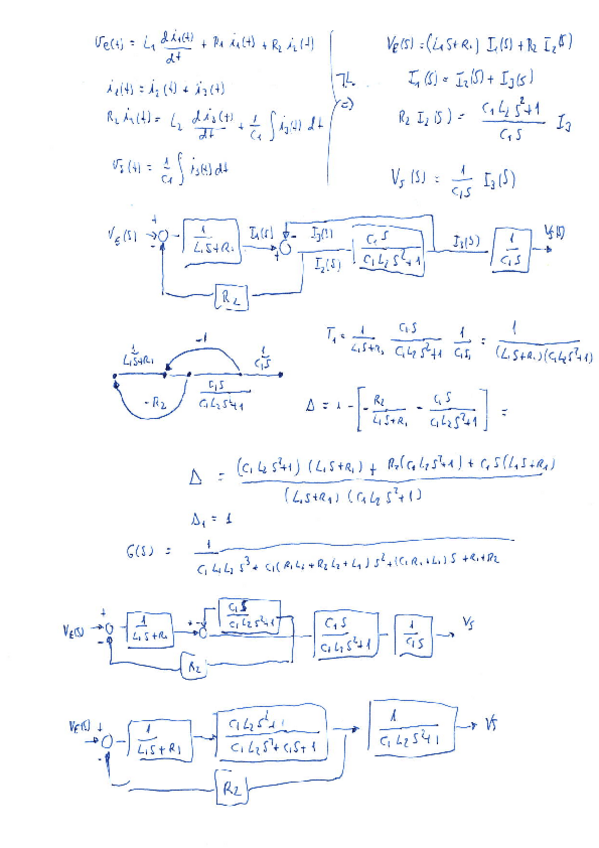 Ve(t) = L₁ di₁(t)/dt + R₁ i₁(t) + R₂ i₂(t)
i₁(t) = i₂(t) + i₃(t)
R₂ i₂(t) = L₂ di₃(t)/dt + 1/C₁ ∫ i₃(t) dt
Vs(t) = 1/C₁ ∫ i₃(t) dt
T.L. =>
VE(S) = (L₁S+R₁) I₁(S) + R₂ I₂(S)
I₁(S) = I₂(S) + I₃(S)
R₂ I₂(S) = (C₁L₂S²+1)/(C₁S) I₃
Vs(S) = 1/(C₁S) I₃(S)
VE(S) + - 1/(L₁S+R₁) I₁(S) + - I₃(S) I₂(S) C₁S/(C₁L₂S²+1) I₃(S) 1/(C₁S) Vs(S)
R₂
-1
1/(L₁S+R₁) 1/(C₁S)
-R₂ C₁S/(C₁L₂S²+1)
T₁ = 1/(L₁S+R₁) C₁S/(C₁L₂S²+1) 1/(C₁S) = 1/((L₁S+R₁)(C₁L₂S²+1))
Δ = 1 - [ -R₂/(L₁S+R₁) - C₁S/(C₁L₂S²+1) ] =
Δ = ((C₁L₂S²+1)(L₁S+R₁) + R₂(C₁L₂S²+1) + C₁S(L₁S+R₁))/((L₁S+R₁)(C₁L₂S²+1))
Δ₁ = 1
G(S) = 1/(C₁L₁L₂S³ + C₁(R₁L₂+R₂L₂+L₁)S² + (C₁R₁+L₁)S + R₁+R₂)
C₁S/(C₁L₂S²+1)
VE(S) + - 1/(L₁S+R₁) + - C₁S/(C₁L₂S²+1) 1/(C₁S) Vs
R₂
VE(S) + - 1/(L₁S+R₁) (C₁L₂S²+1)/(C₁L₂S²+C₁S+1) 1/(C₁L₂S²+1) Vs
R₂